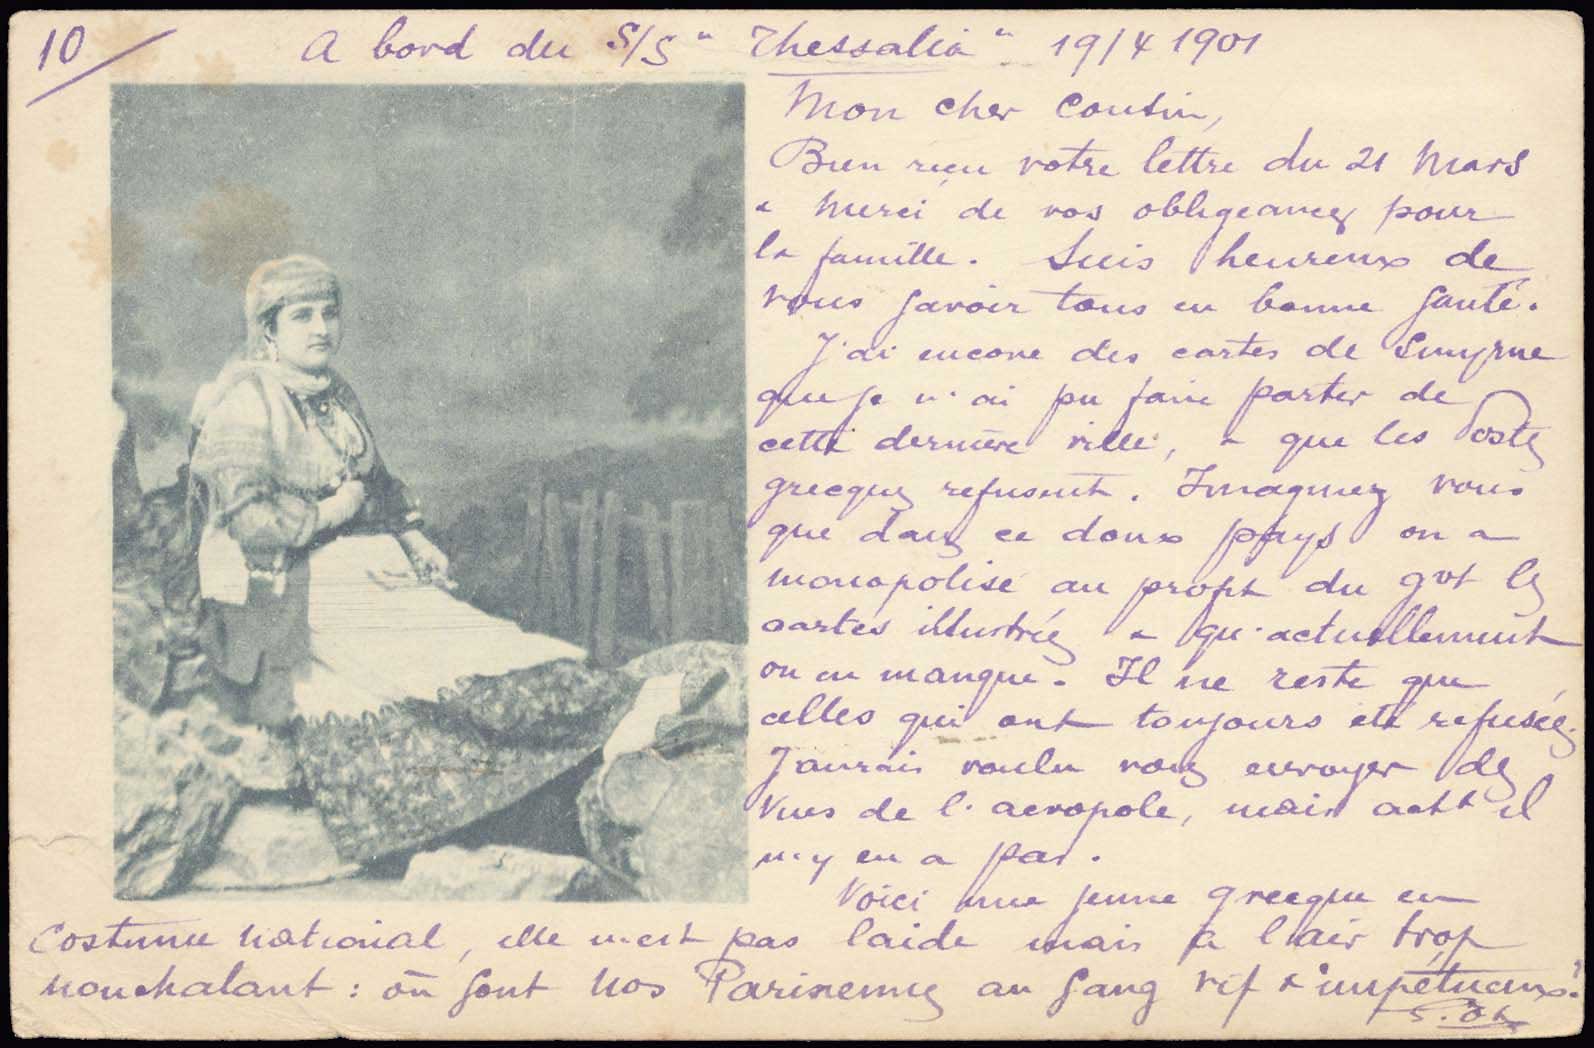 10/ A bord du S/S "Thessalia" 19/4 1901
Mon cher Cousin,
Bien reçu votre lettre du 21 Mars
& merci de vos obligeances pour
la famille. Suis heureux de
vous savoir tous en bonne santé.
J'ai encore des cartes de Smyrne
que je n'ai pu faire partir de
cette dernière ville, & que les Postes
grecques refusent. Imaginez vous
que dans ce doux pays on a
monopolisé au profit du gvt les
cartes illustrées & qu'actuellement
on en manque. Il ne reste que
celles qui ont toujours été refusées.
J'aurais voulu vous envoyer des
vues de l'acropole, mais actt il
n'y en a pas.
Voici une jeune grecque en
costume national, elle n'est pas laide mais a l'air trop
nonchalant : où sont nos Parisiennes au sang vif & impétueux?